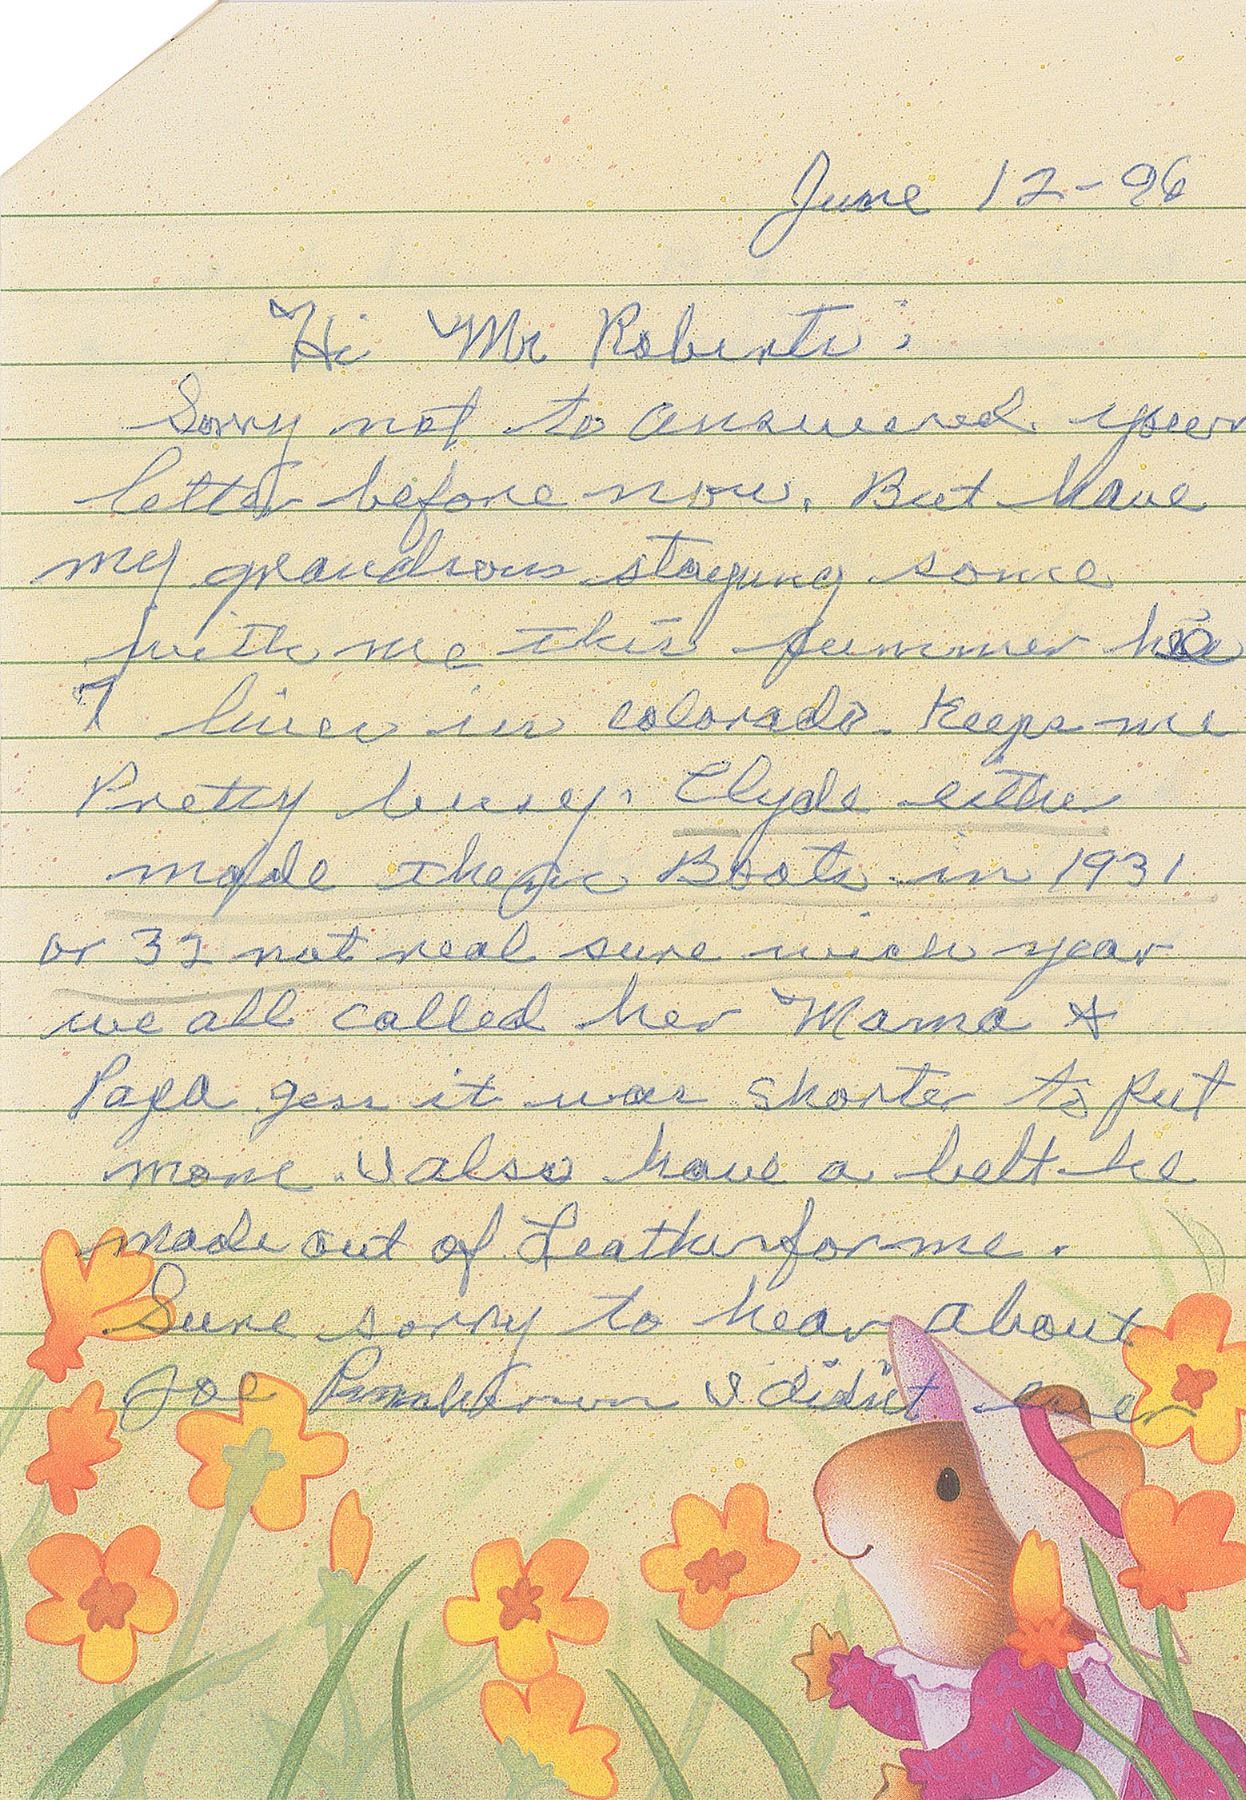 June 12-96
Hi Mr Roberts:
Sorry not to answered your
letter before now. But have
my grandsons staying some
with me this summer he
7 lives in colorado. Keeps me
Pretty busy. Clyde either
made Boots in 1931
or 32 not real sure wich year
we all called her Mama &
Papa gess it was shorter to put
more. I also have a belt he
made out of Leather for me.
Sure sorry to hear about
Joe I didn't ever